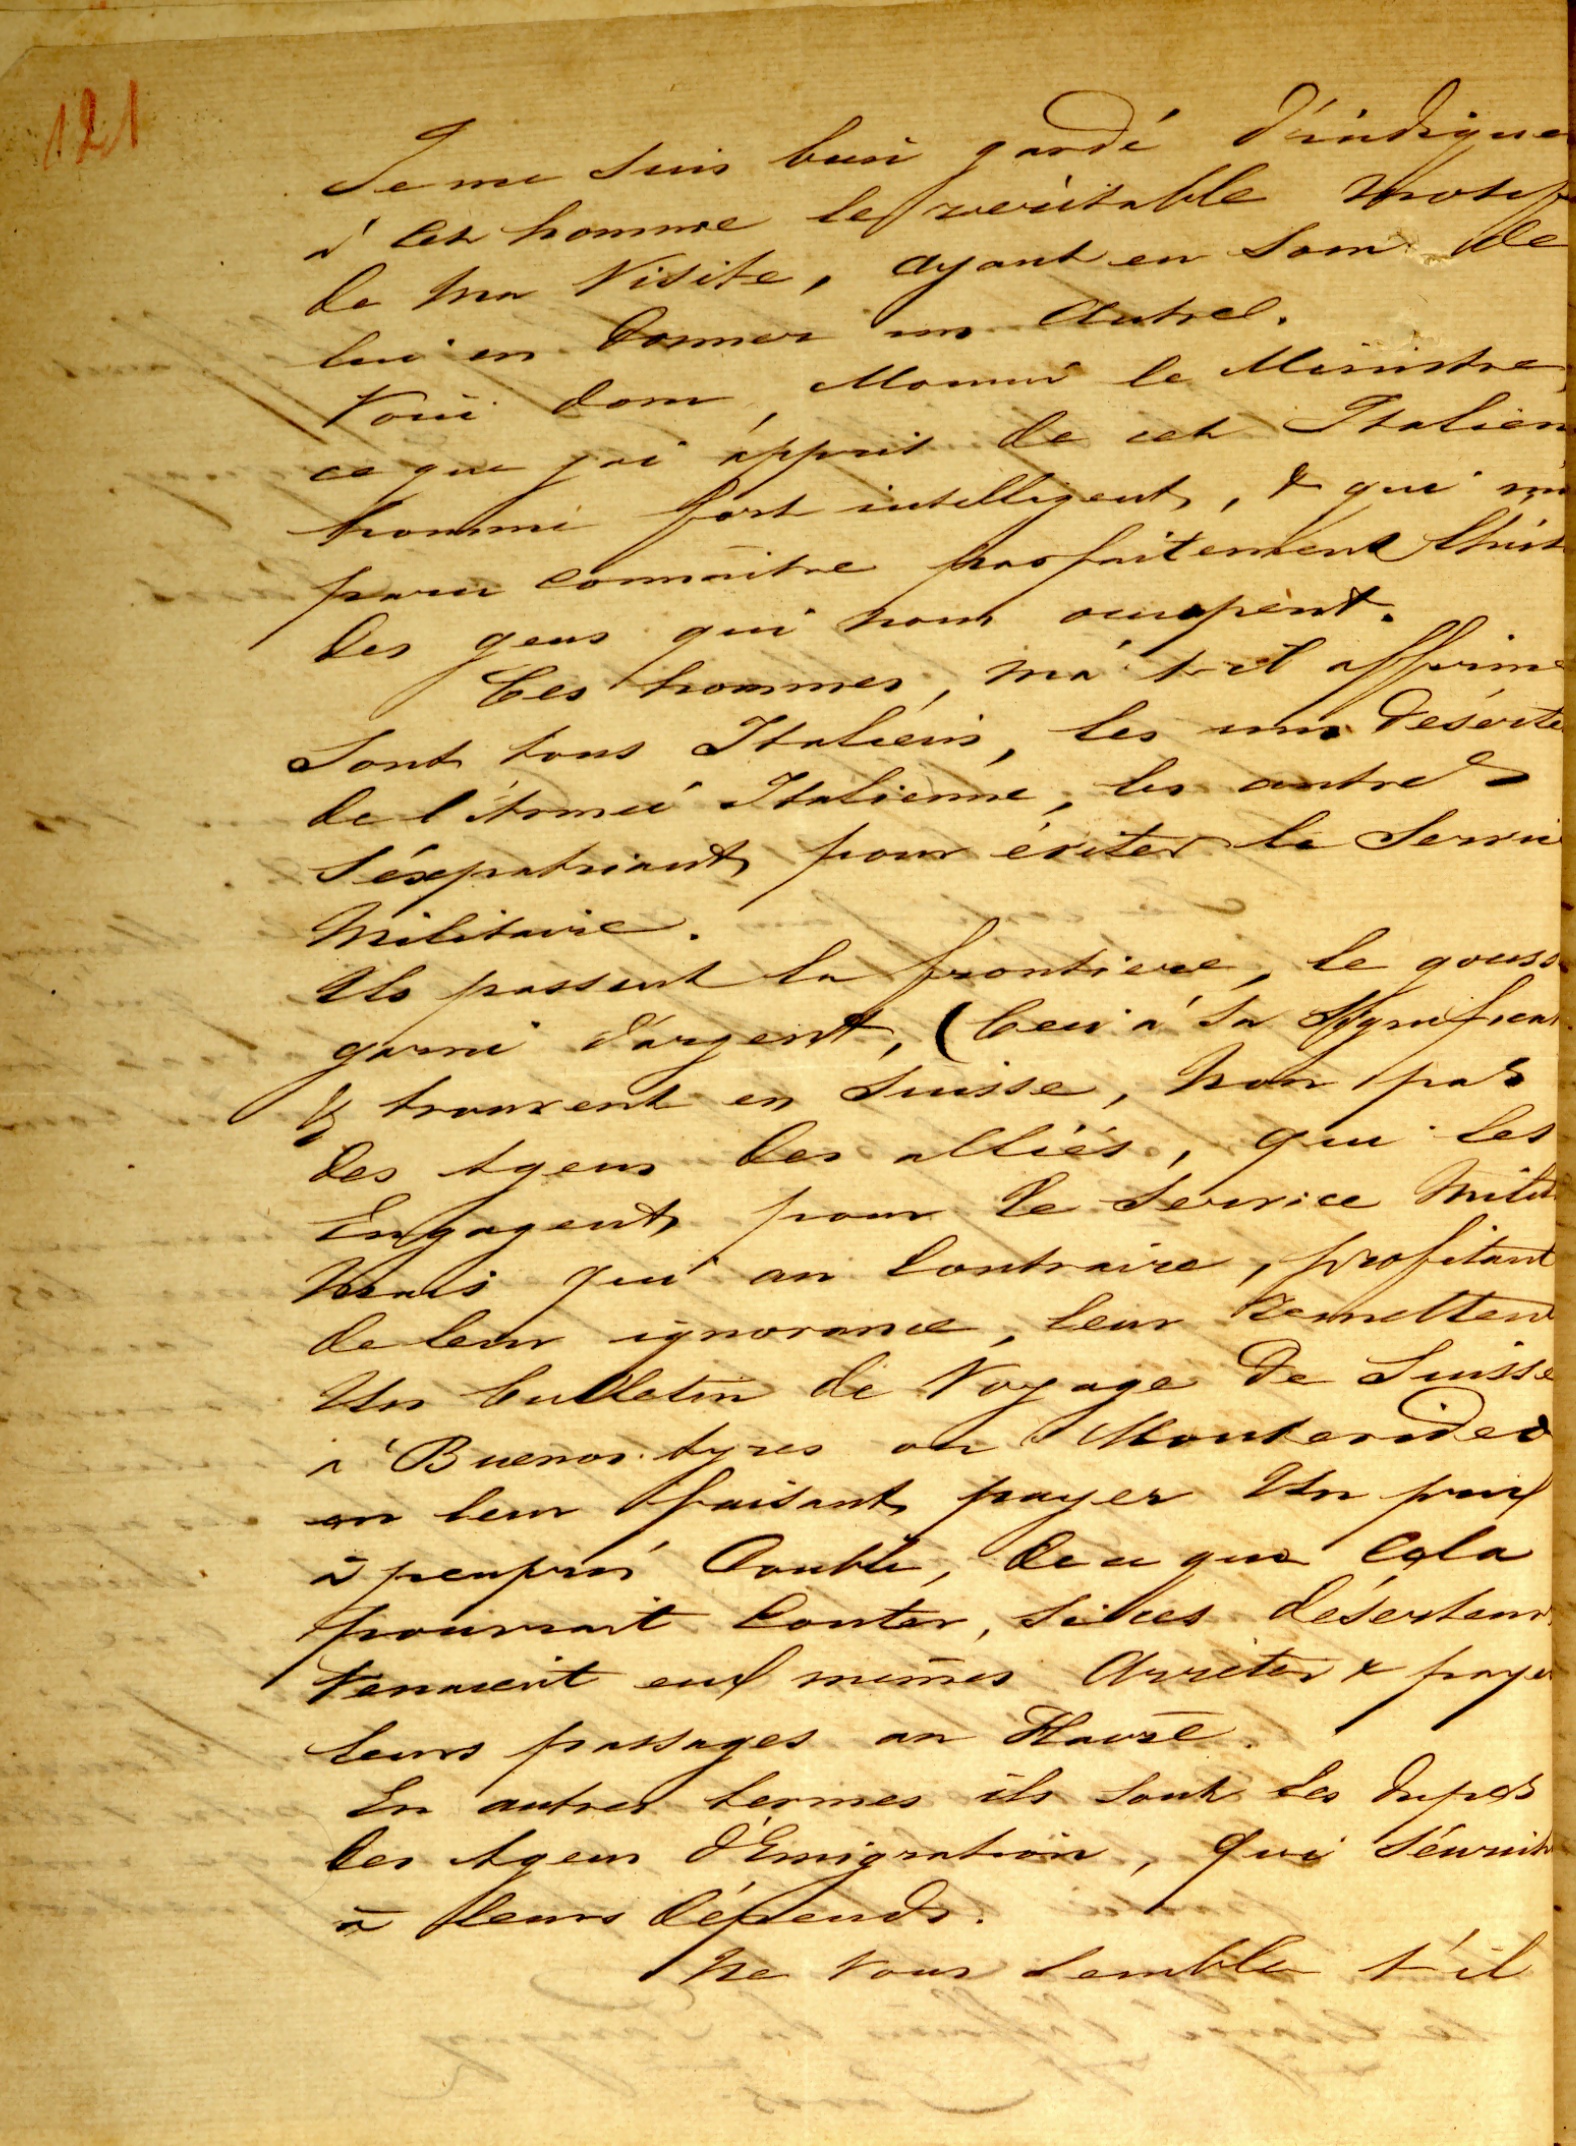 121
Je me suis bien gardé d'indique
à cet homme le veritable motif
de ma Visite, ayant eu soin de
lui en donner un Autre.
Voici donc, Monsieur le Ministre,
ce que j'ai appris de cet Italien
homme fort intelligent, & qui m'a
paru connaitre parfaitement
des gens qui nous occupent.
Ces hommes, m'a t-il affirmé
Sont tous Italiens, les uns Déserte
de l'Armée Italienne, les autres
S'éxpatriant pour éviter le Servi
Militaire.
Ils passent la frontiere, le gouss
garni d'argent, (Ceci a sa Signficat
& trouvent en Suisse, Non pas
des Agens des alliés, qui les
Engagent pour le Service Milit
Mais qui au Contraire, profitant
de leur ignorance, leur remettent
Un bulletin de Voyage De Suisse
à Buenos-Ayres ou Montevideo
en leur faisant payer Un prix
à peuprés Double, de ce que Cela
pourrait Couter, Si ces déserteurs
Venaient eux mêmes Arrêter & paye
leurs passages au Havre.
En autres termes ils sont les Dupes
des Agens d'Emigration, qui S'enrich
à leurs dépends.
Ne Vous semble t-il